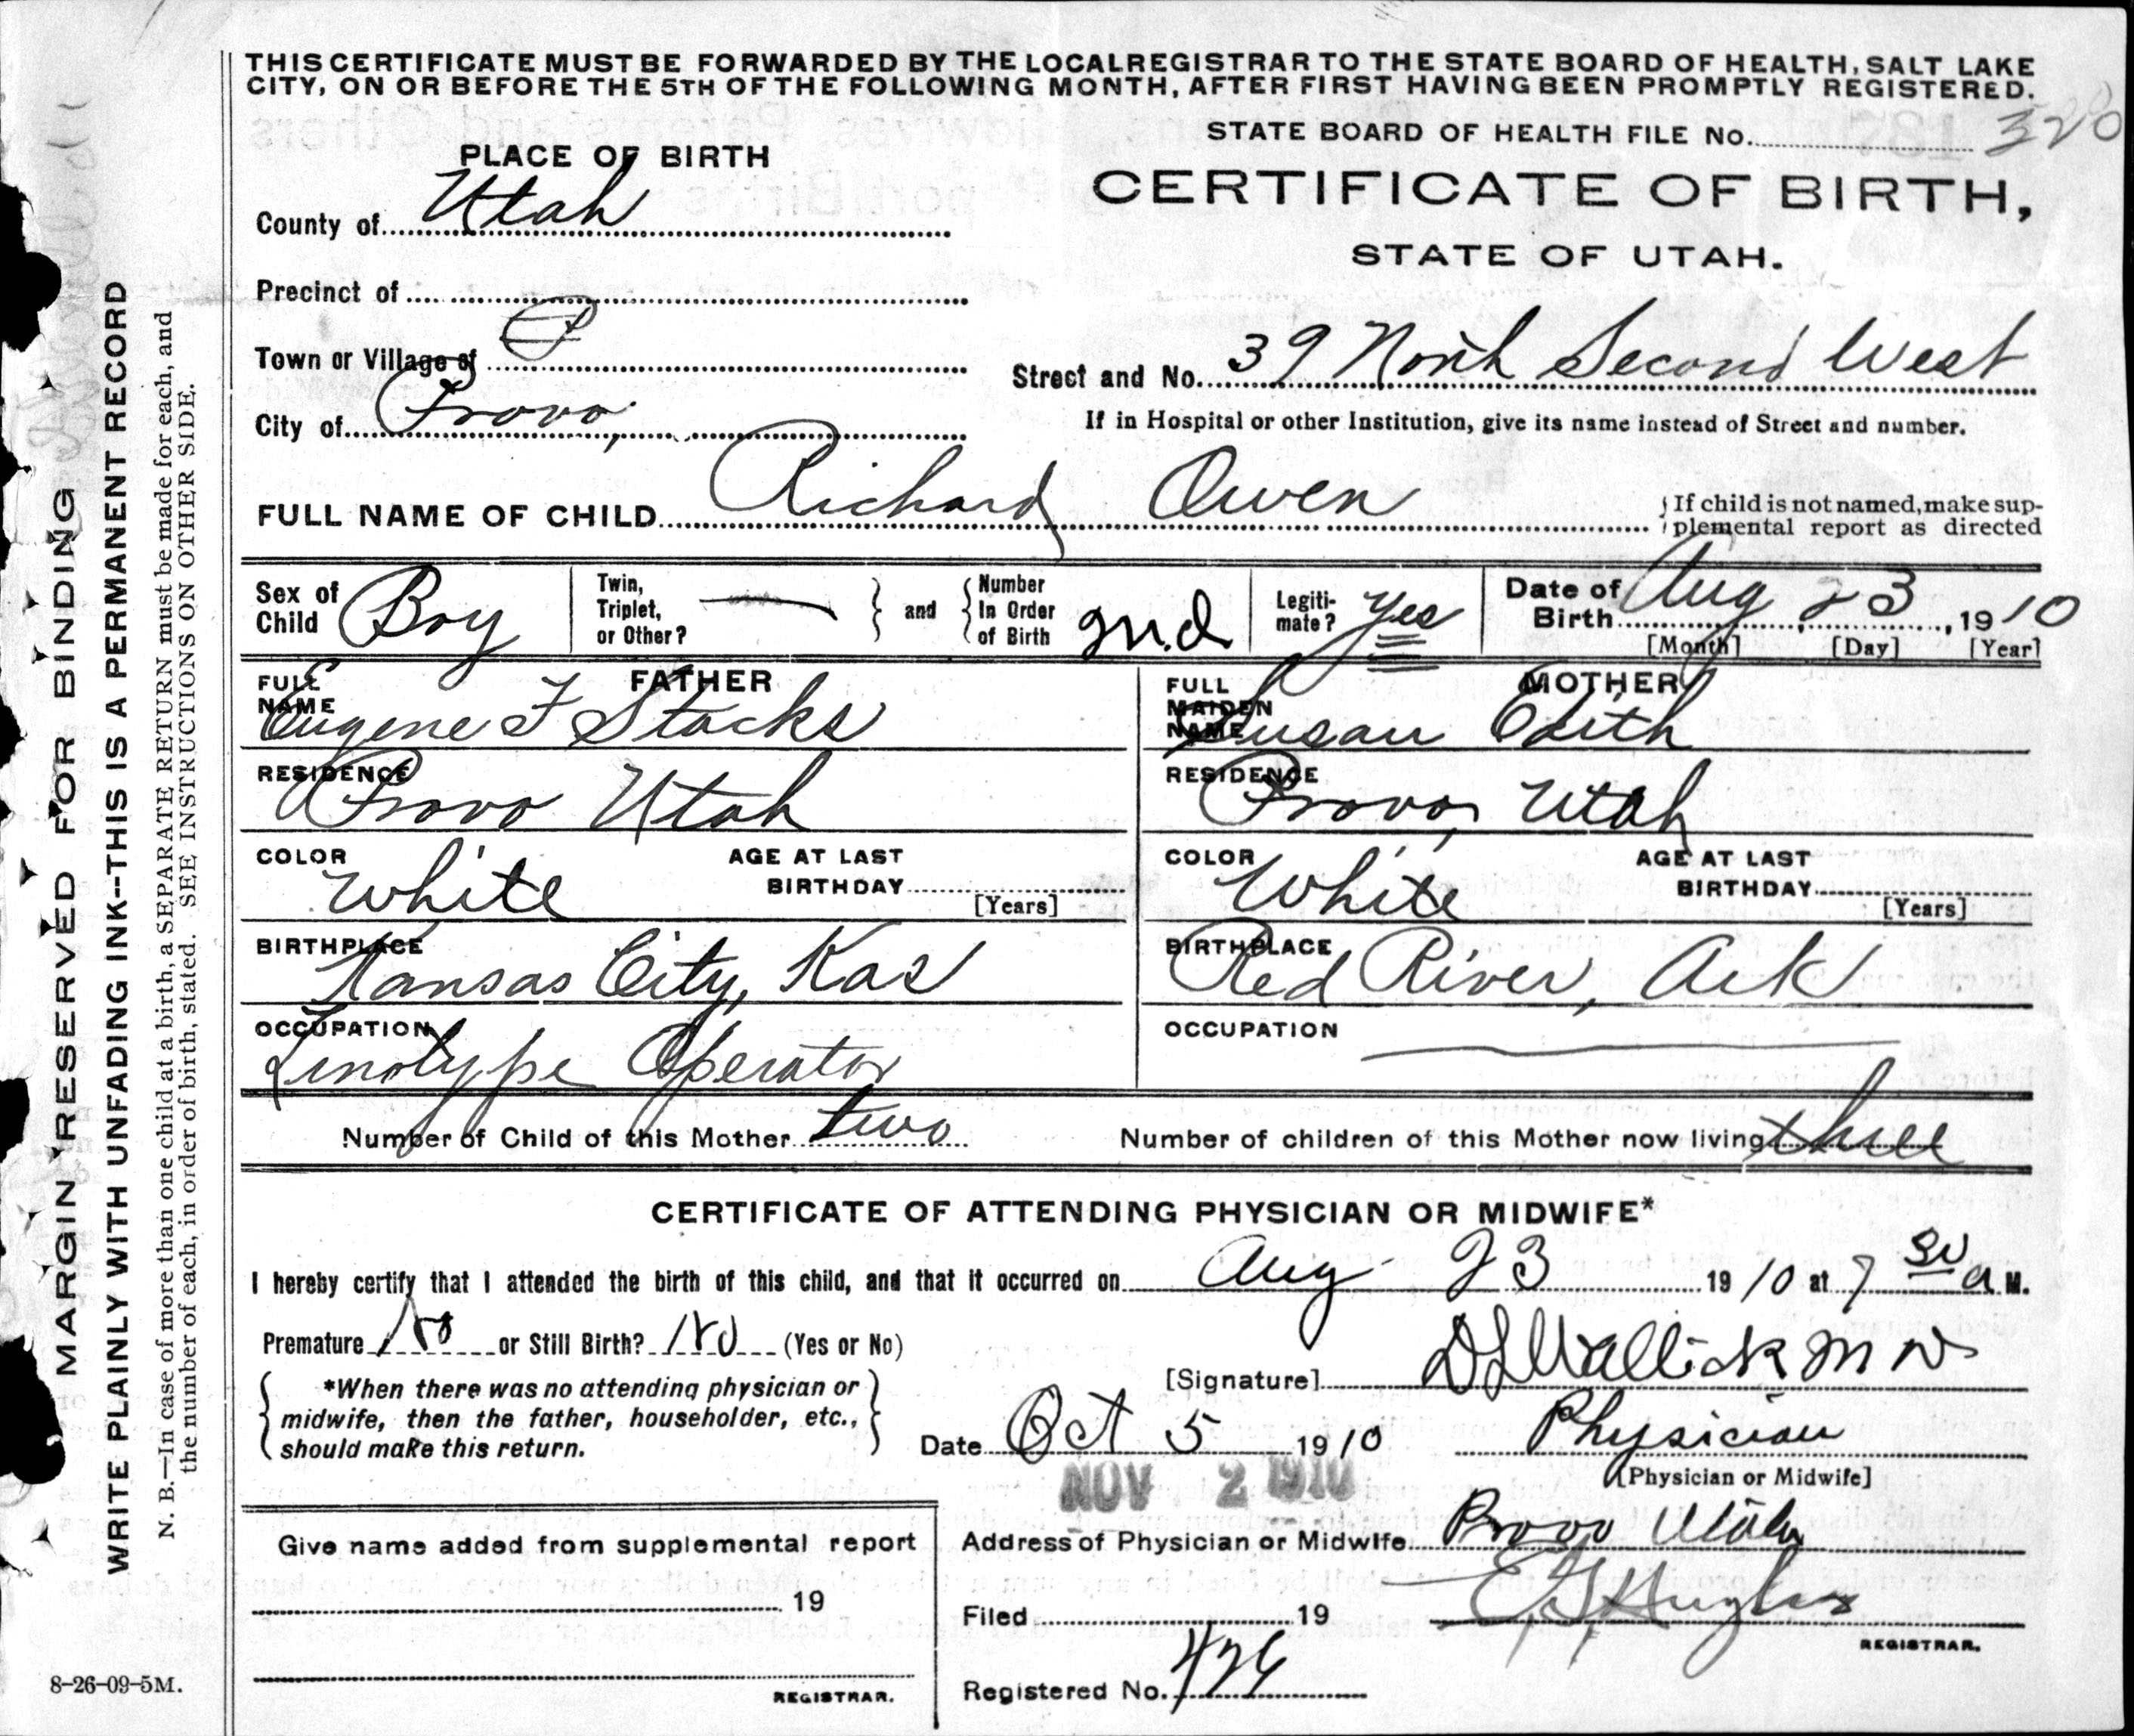 THIS CERTIFICATE MUST BE FORWARDED BY THE LOCAL REGISTRAR TO THE STATE BOARD OF HEALTH, SALT LAKE
CITY, ON OR BEFORE THE 5TH OF THE FOLLOWING MONTH, AFTER FIRST HAVING BEEN PROMPTLY REGISTERED.
STATE BOARD OF HEALTH FILE No. 320
PLACE OF BIRTH
CERTIFICATE OF BIRTH,
STATE OF UTAH.
County of Utah
Precinct of
Town or Village of
Street and No. 39 North Second West
If in Hospital or other Institution, give its name instead of Street and number.
City of Provo,
FULL NAME OF CHILD Richard Owen
If child is not named, make sup-
plemental report as directed
Sex of Child Boy
Twin, Triplet, or Other? —
and
Number In Order of Birth 2n.d
Legiti-
mate? Yes
Date of Birth Aug 23, 1910
[Month] [Day] [Year]
FATHER
FULL NAME Eugene F Stocks
RESIDENCE Provo Utah
COLOR White
AGE AT LAST BIRTHDAY [Years]
BIRTHPLACE Kansas City, Kas
OCCUPATION Linotype Operator
MOTHER
FULL MAIDEN NAME Susan Edith
RESIDENCE Provo, Utah
COLOR White
AGE AT LAST BIRTHDAY [Years]
BIRTHPLACE Red River, Ark
OCCUPATION
Number of Child of this Mother two
Number of children of this Mother now living three
CERTIFICATE OF ATTENDING PHYSICIAN OR MIDWIFE*
I hereby certify that I attended the birth of this child, and that it occurred on Aug 23 1910 at 7 30 a M.
Premature No or Still Birth? No (Yes or No)
*When there was no attending physician or
midwife, then the father, householder, etc.,
should make this return.
[Signature] D L Wallick M D
Date Oct 5 1910
Physician
[Physician or Midwife]
NOV 2 1910
Address of Physician or Midwife Provo Utah
Give name added from supplemental report
19
REGISTRAR.
Filed 19
E G Hughes
REGISTRAR.
Registered No. 426
MARGIN RESERVED FOR BINDING
WRITE PLAINLY WITH UNFADING INK--THIS IS A PERMANENT RECORD
N. B.—In case of more than one child at a birth, a SEPARATE RETURN must be made for each, and
the number of each, in order of birth, stated. SEE INSTRUCTIONS ON OTHER SIDE.
8-26-09-5M.